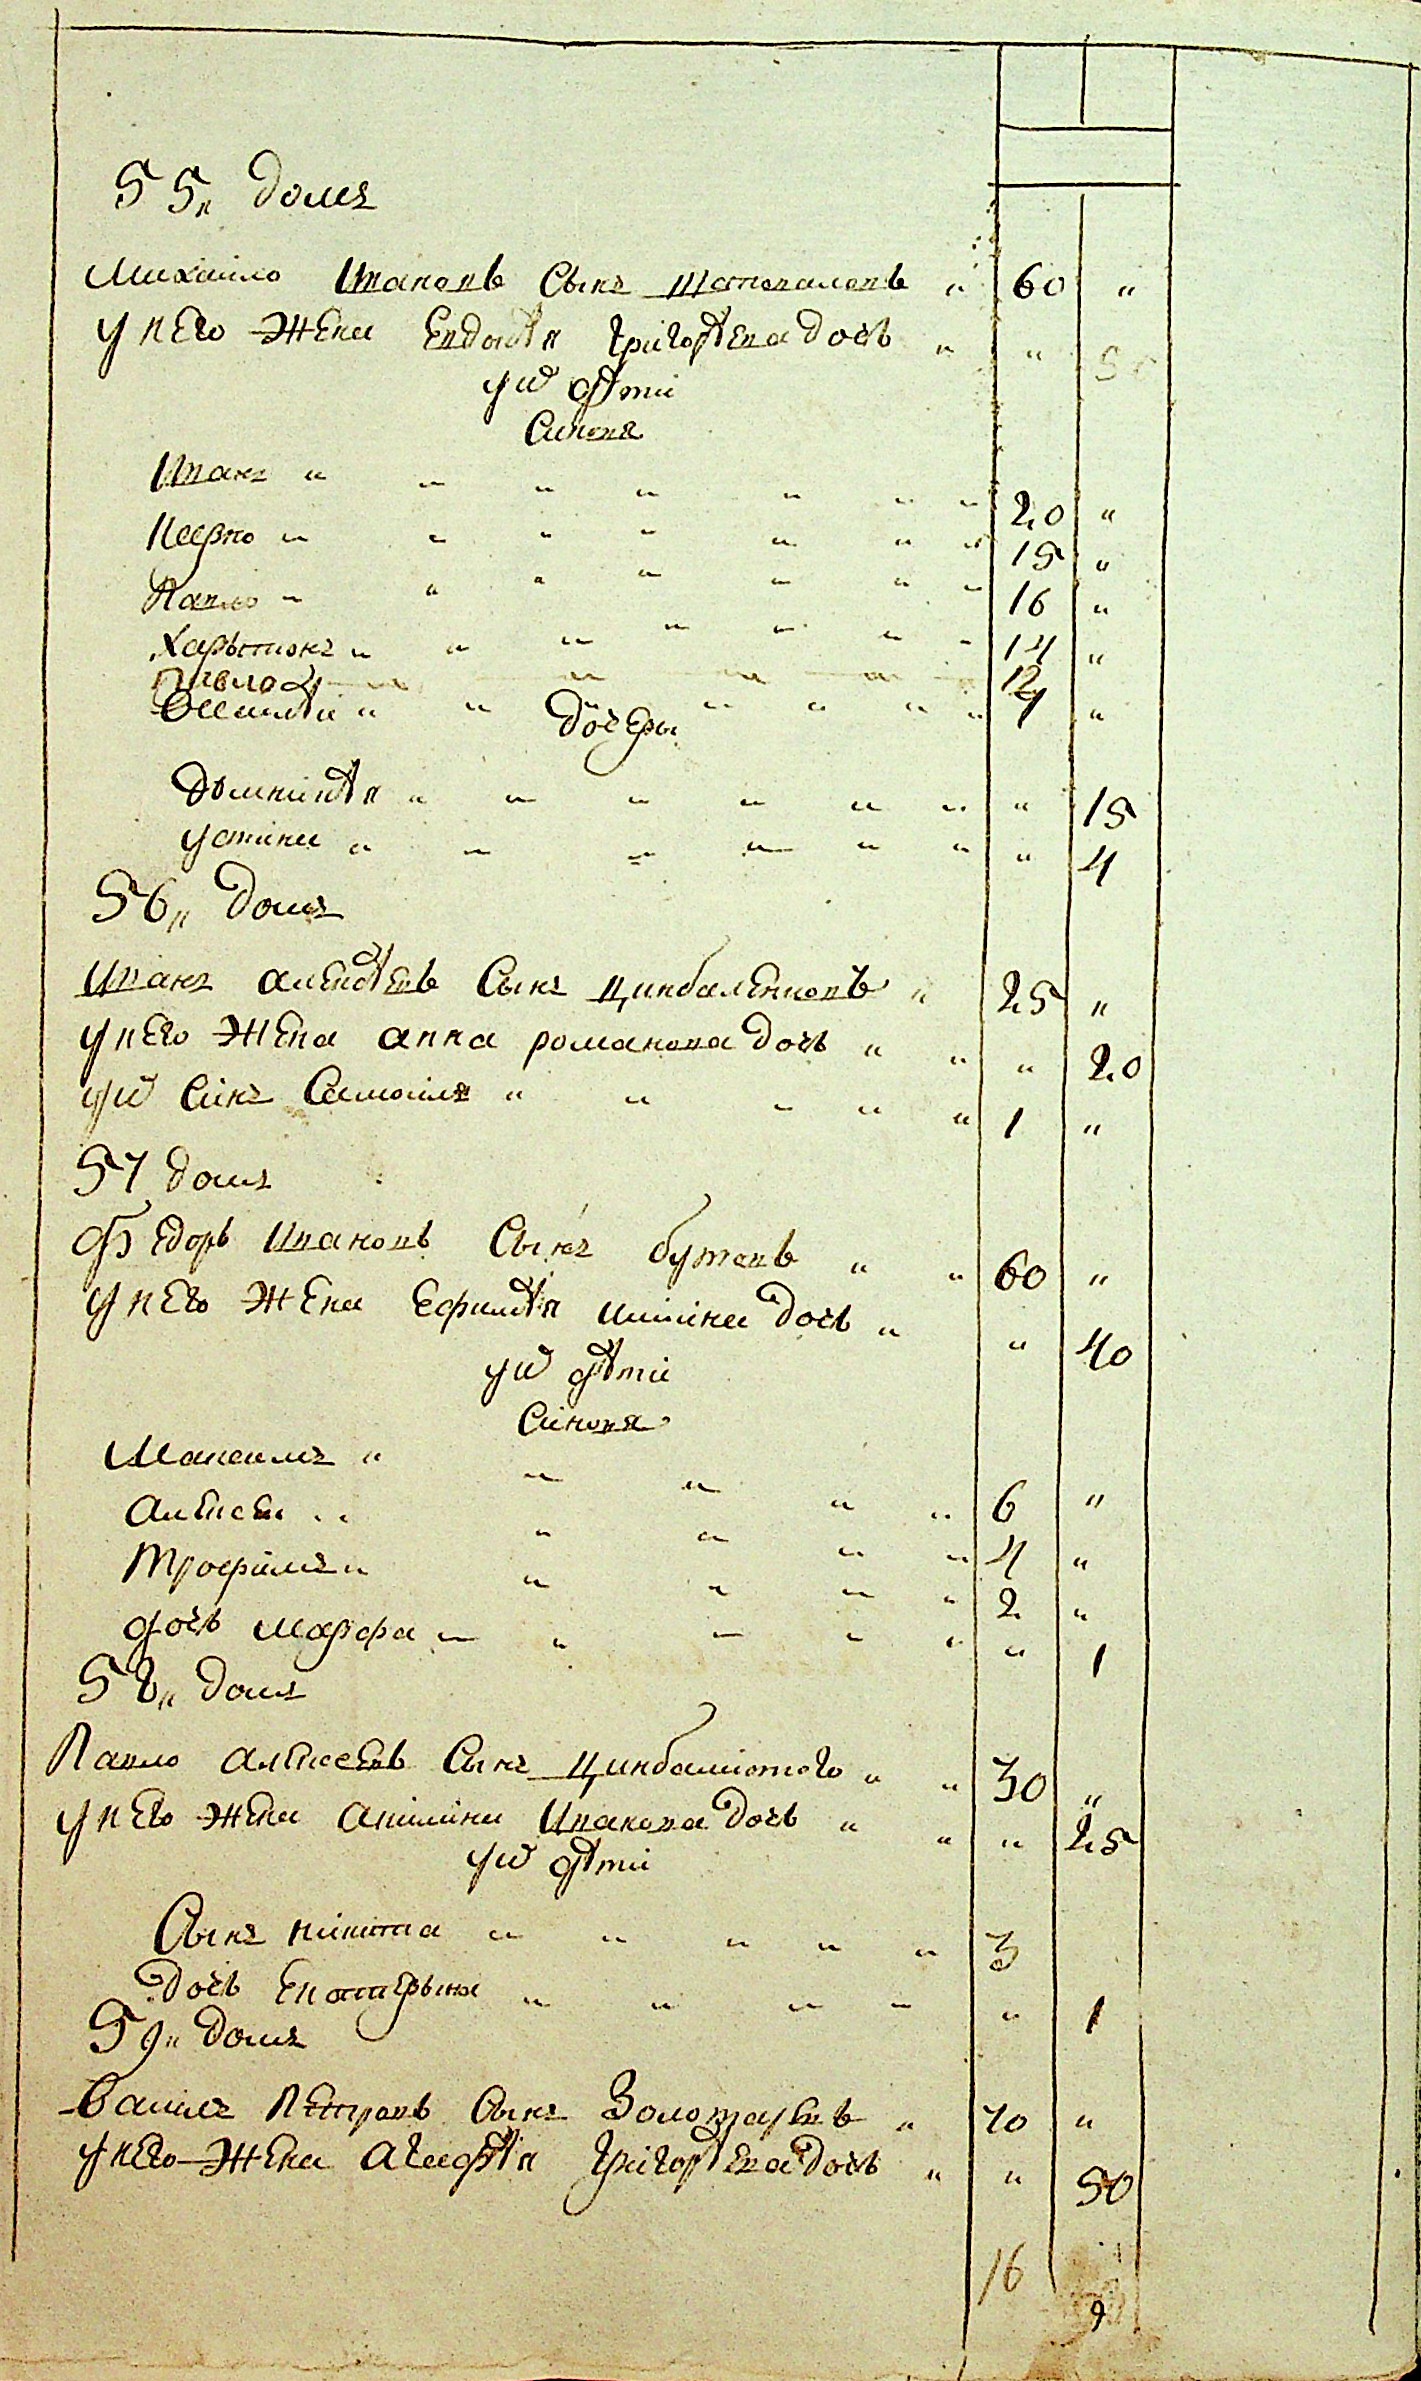 55„ домъ
Михаило Ивановъ Сынъ Шаповаловъ „ 60 „
у него Жена Евдокѣя григорѣева дочь „ „ 50
у ихъ дѣти
Синовя
Иванъ „ „ „ „ „ „ „ 20 „
„ „ „ „ „ „ 15 „
Павло „ „ „ „ „ „ „ 16 „
Харытонъ „ „ „ „ „ „ „ 14 „
Павло 2й „ „ „ „ 12
„ „ „ „ „ „ „ „
дочеры
Домникѣя „ „ „ „ „ „ „ 15
устина „ „ „ „ „ „ „ 4
56„ домъ
Иванъ алексѣевъ Сынъ цинбаленковъ „ 25 „
у него Жена анна романова дочь „ „ „ 20
у ихъ Синъ Самоилъ „ „ „ „ „ 1 „
57 домъ
Федоръ Ивановъ Сынъ бутовъ „ „ 60 „
у него Жена Ефимѣя дочь „ „ 40
у ихъ дѣти
Синовя
Максимъ „ „ „ „ „ 6 „
алексеи „ „ „ „ „ 4 „
Трофимъ „ „ „ „ „ 2 „
дочь марфа „ „ „ „ „ „ 1
58„ домъ
Павло алексеевъ Сынъ „ „ 30 „
у него жена акилина Иванова дочь „ „ „ 25
у ихъ дѣти
Сынъ никита „ „ „ „ „ 3
Дочь Екатерына „ „ „ „ „ 1
59„ домъ
Василъ Петровъ Сынъ Золотаревъ „ 70 „
у него Жена агафѣя григорѣева дочь „ „ 50
16
9